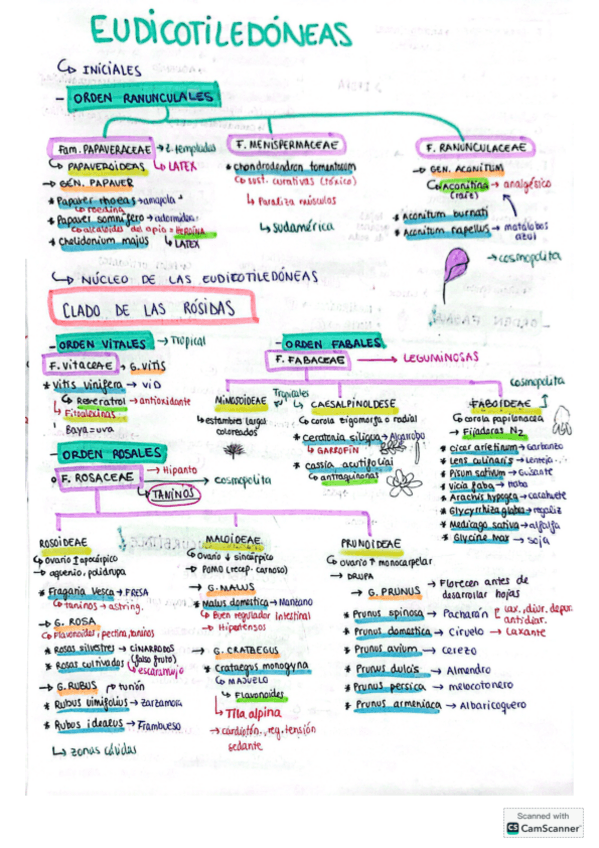 EUDICOTILEDÓNEAS
↳ INICIALES
- ORDEN RANUNCULALES
Fam. PAPAVERACEAE → z. templadas
↳ PAPAVEROIDEAS ↳ LATEX
→ GÉN. PAPAVER
* Papaver rhoeas → amapola
* Papaver somnifero → adormidera
↳ alcaloides del opio = HEROÍNA
* Chelidonium majus ↳ LATEX
F. MENISPERMACEAE
* chondrodendron tomentosum
↳ sust. curativas (tóxico)
↳ Paraliza músculos
↳ sudamérica
F. RANUNCULACEAE
→ GEN. ACONITUM
↳ Aconitina → analgésico
(raíz)
* Aconitum burnati
* Aconitum napellus → matalobos
azul
→ cosmopolita
↳ NÚCLEO DE LAS EUDICOTILEDÓNEAS
CLADO DE LAS RÓSIDAS
- ORDEN VITALES → Tropical
F. Vitaceae → G. VITIS
* Vitis vinifera → VID
↳ Resveratrol → antioxidante
↳ Fitoalexinas
Baya = uva
- ORDEN FABALES
F. FABACEAE → LEGUMINOSAS
MIMOSOIDEAE
↳ estambres largos
coloreados
Tropicales
↳ CAESALPINOIDESE
↳ corola zigomorfa o radial
* ceratonia siliqua → Algarrobo
↳ GARROFÍN
* cassia acutifolia
↳ antraquinonas
cosmopolita
FABOIDEAE
↳ corola papilonacea
→ Fijadoras N2
* cicer arietinum → Garbanzo
* Lens culinaris → Lenteja
* Pisum sativum → Guisante
* Vicia faba → Haba
* Arachis hypogea → cacahuete
* Glycyrrhiza glabra → regaliz
* Medicago sativa → alfalfa
* Glycine max → soja
- ORDEN ROSALES
F. ROSACEAE → Hipanto
→ cosmopolita
↳ TANINOS
ROSOIDEAE
↳ Ovario ↑ apocárpico
→ aquenio, polidrupa
* Fragaria Vesca → FRESA
↳ taninos → astring.
→ G. ROSA
↳ Flavonoides, pectina, taninos
* Rosas silvestres → CINARRODOS
(falso fruto)
* Rosas cultivadas ↳ escaramujo
→ G. RUBUS
* Rubus ulmifolius → zarzamora
* Rubus idaeus → Frambueso
↳ zonas cálidas
MALOIDEAE
↳ Ovario ↓ sincárpico
→ POMO (recep. carnoso)
→ G. MALUS
* Malus domestica → Manzano
↳ Buen regulador intestinal
→ Hipotensos
→ G. CRATAEGUS
* Crataegus monogyna
↳ MAJUELO
↳ Flavonoides
↳ Tila alpina
→ cardiotón., reg. tensión
sedante
PRUNOIDEAE
↳ Ovario ↑ monocarpelar
→ DRUPA
→ G. PRUNUS → Florecen antes de
desarrollar hojas
* Prunus spinosa → Pacharán [lax., diur., depur.
antidiar.
* Prunus domestica → Ciruelo → Laxante
* Prunus avium → cerezo
* Prunus dulcis → Almendro
* Prunus persica → melocotonero
* Prunus armeniaca → Albaricoquero
Scanned with
CS CamScanner